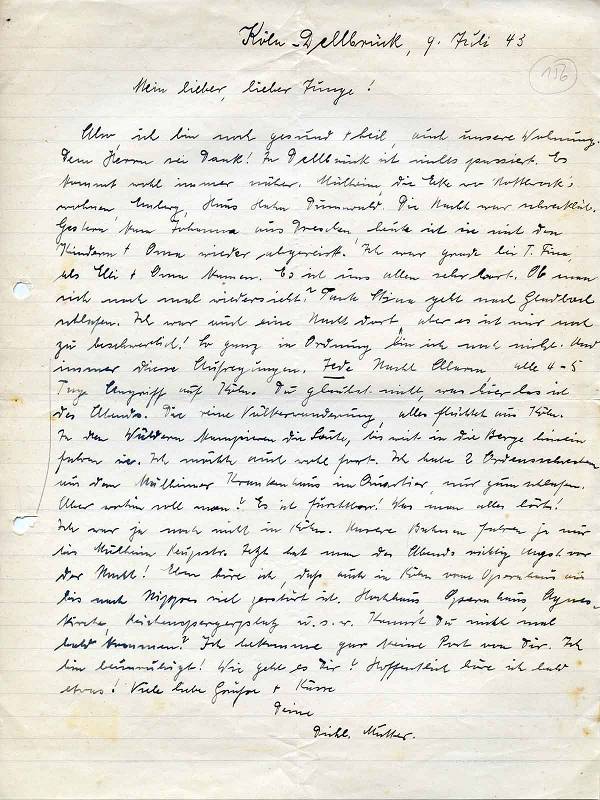 Köln-Dellbrück, 9. Juli 43
156
Mein lieber, lieber Junge!
Also, ich bin noch gesund + heil, auch unsere Wohnung.
Dem Herrn sei Dank! In Dellbrück ist nichts passiert. Es
kommt wohl immer näher. Mülheim, die Ecke wo
wohnen, Haus Hahn Dünnwald. Die Nacht war schrecklich.
Gestern kam Johanna aus Dresden, heute ist sie mit den
Kindern + Oma wieder abgereist. Ich war grade bei T. Fine,
als Elli + Oma kamen. Es ist uns allen sehr hart. Ob man
sich noch mal wiedersieht? Tante geht nach Gladbach
schlafen. Ich war auch eine Nacht dort, aber es ist mir
zu beschwerlich! So ganz in Ordnung bin ich noch nicht. Und
immer diese Aufregungen. Jede Nacht Alarm, alle 4-5
Tage Angriff auf Köln. Du glaubst nicht, was hier los ist
des Abends. Die reine Völkerwanderung, alles flüchtet aus Köln.
In den Wäldern kampieren die Leute, bis weit in die Berge hinein
fahren sie. Ich möchte auch wohl fort. Ich habe 2 Ordensschwestern
aus dem Mülheimer Krankenhaus im Quartier, nur zum schlafen.
Aber wohin soll man? Es ist furchtbar! Was man alles hört!
Ich war ja noch nicht in Köln. Unsere Bahnen fahren ja nur
bis Mülheim Keupstr. Jetzt hat man des Abends richtig Angst vor
der Nacht! Eben höre ich, daß auch in Köln vom Opernhaus
bis nach Nippes viel zerstört ist. Hochhaus, Opernhaus, Agnes-
kirche, Reichenspergerplatz u.s.w. Kannst Du nicht mal
bald kommen? Ich bekomme gar keine Post von Dir. Ich
bin beunruhigt! Wie geht es Dir? Hoffentlich höre ich bald
etwas! Viele liebe Grüße + Küsse
Deine
Mutter.